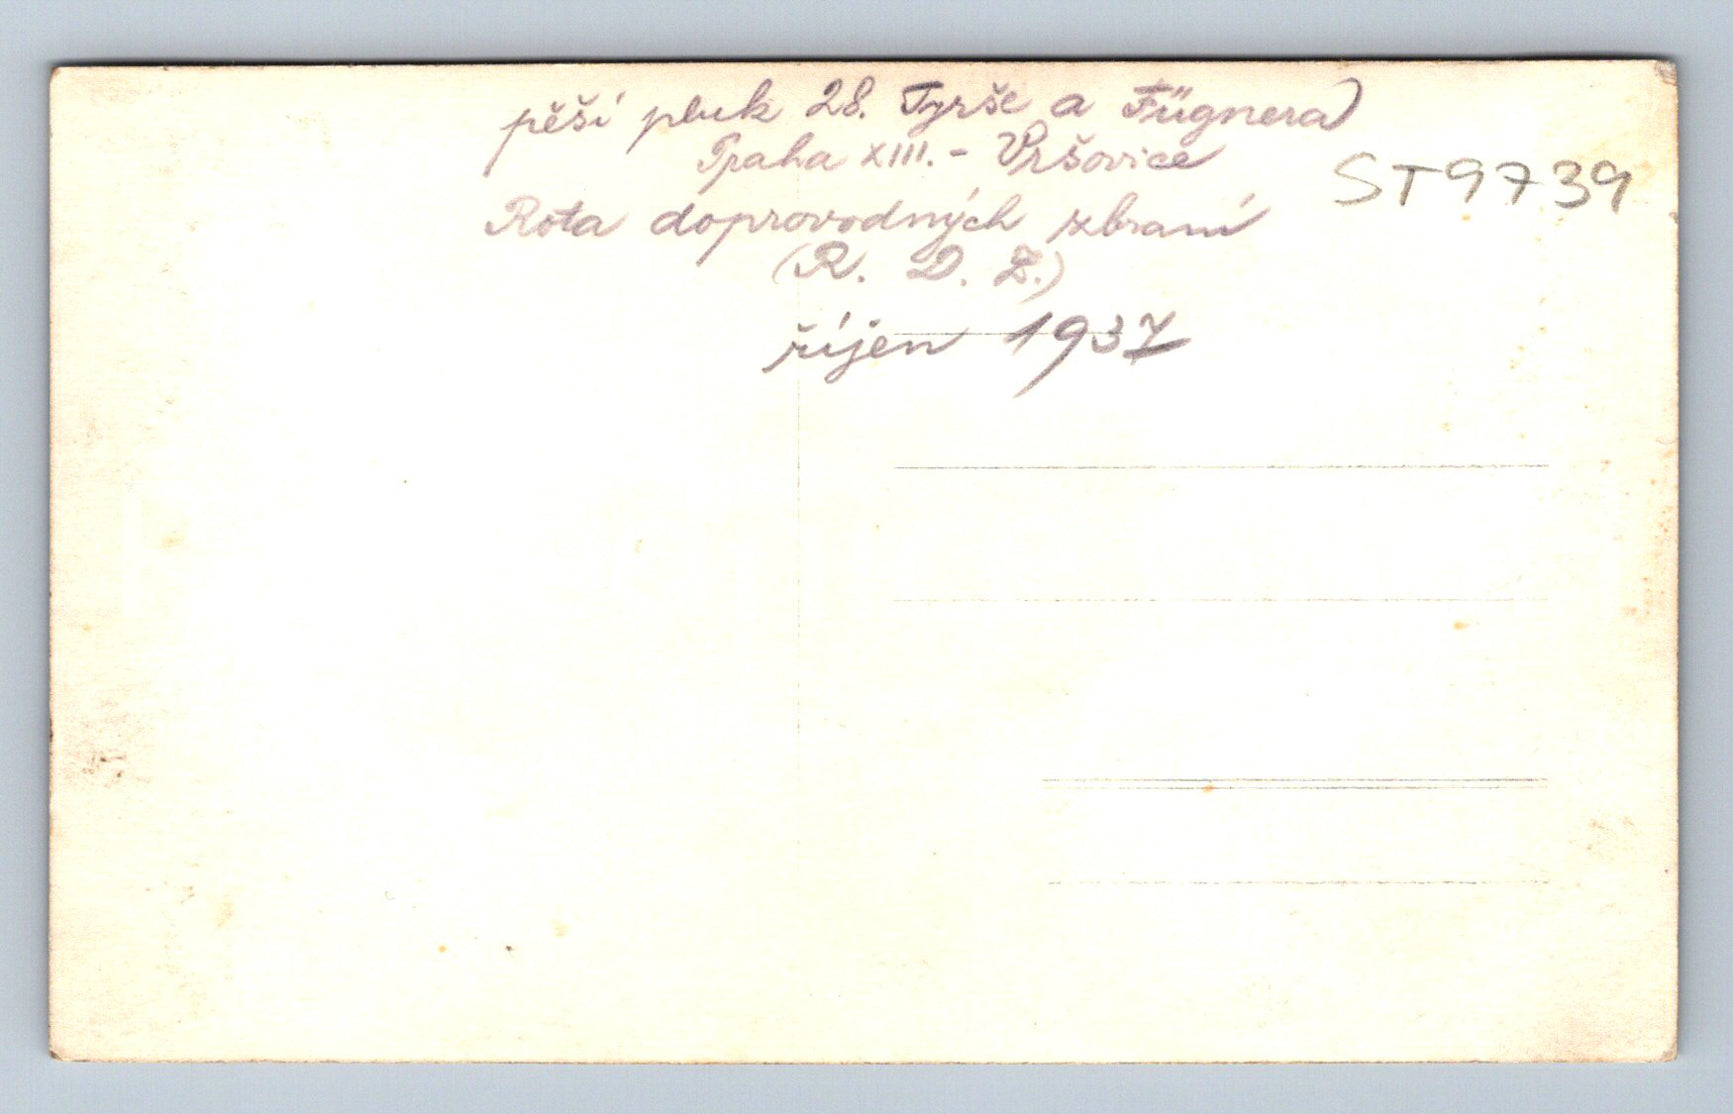 pěší pluk 28. Tyrše a Fügnera
Praha XIII. - Vršovice
ST9739
Rota doprovodných zbraní
(R. D. Z.)
říjen 1937